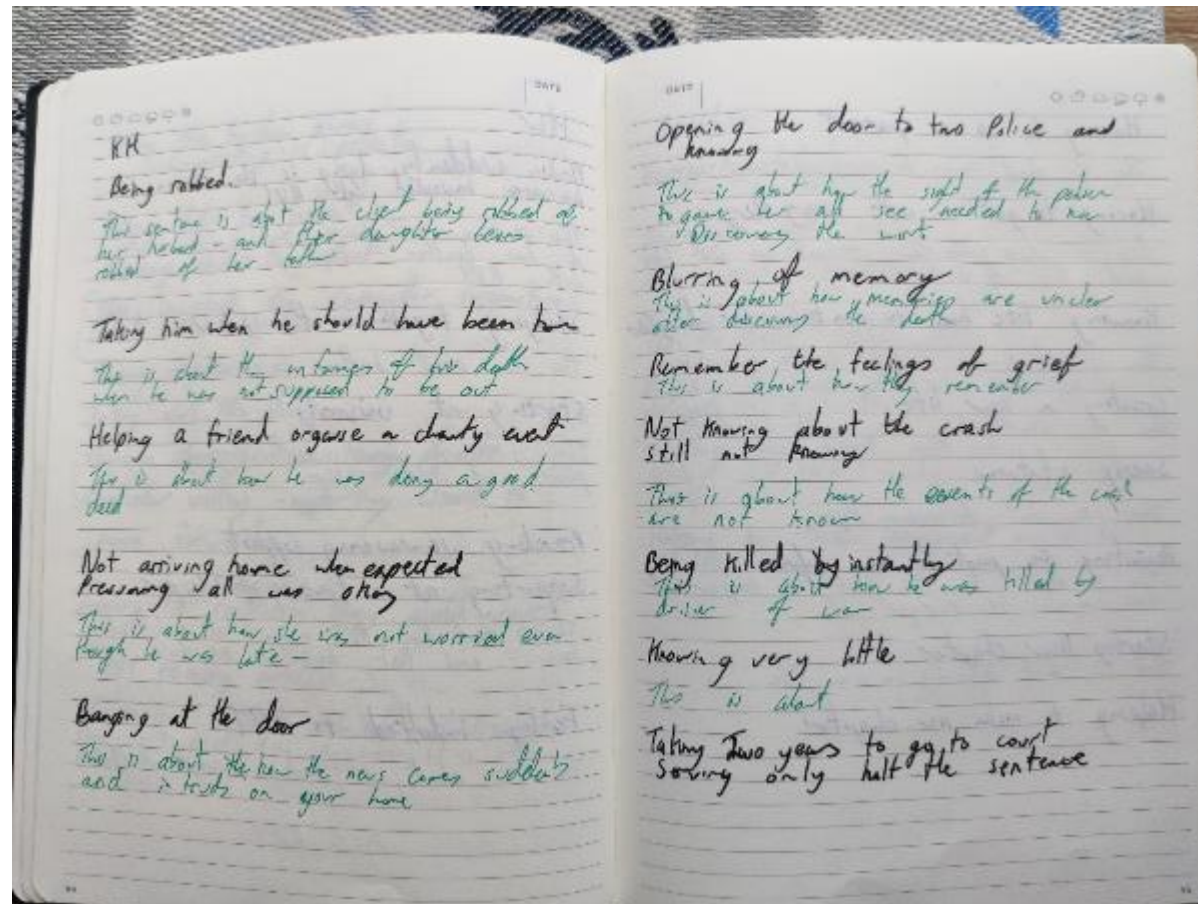 DATE
KH
Being robbed.
This sentence is about the client being robbed of
her husband - and their daughter being
robbed of her father
Taking him when he should have been
This is about the of his death
when he was not supposed to be out
Helping a friend organise a charity event
This is about how he was doing a good
deed
Not arriving home when expected
Pressuming all was okay
This is about how she was not worried even
though he was late -
Banging at the door
This is about the how the news comes suddenly
and intruds on your home
DATE
Opening the door to two Police and
knowing
This is about how the sight of the police
to gave her all see needed to now
Discovering the worst
Blurring of memory
This is about how memories are unclear
after discovering the death
Remember the feelings of grief
This is about how they remember
Not Knowing about the crash
still not knowing
This is about how the events of the crash
are not known
Being killed by instantly
This is about how he was killed by
driver of
Knowing very little
This is about
Taking Two years to go to court
Serving only half the sentence